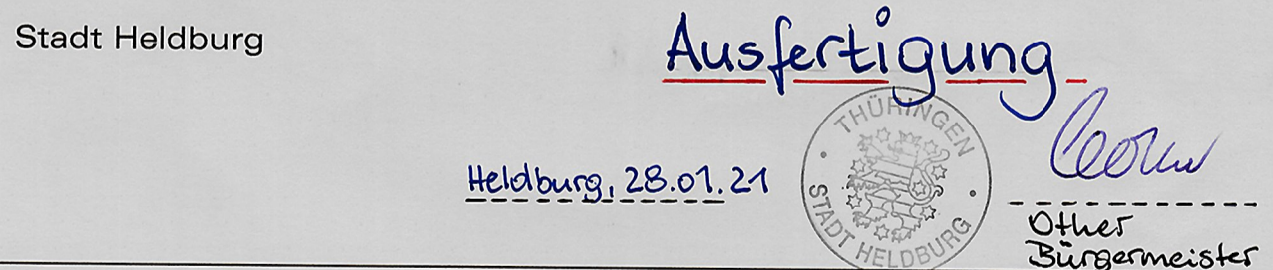 Stadt Heldburg
Ausfertigung
Heldburg, 28.01.21
THÜRINGEN
STADT HELDBURG
Other
Bürgermeister